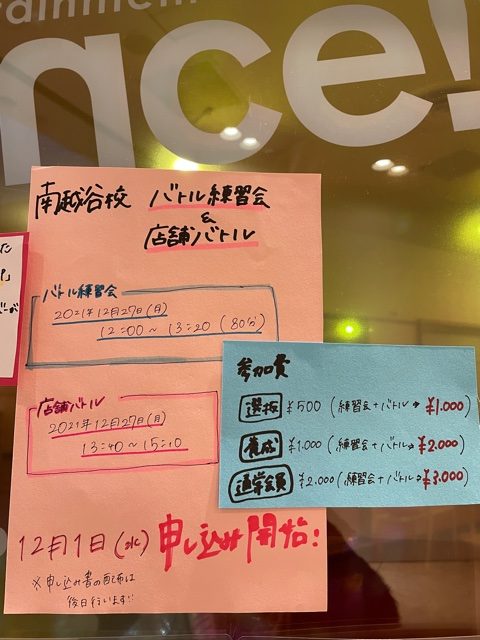 ainment
nce!
南越谷校 バトル練習会
&
店舗バトル
バトル練習会
2021年12月27日(月)
12:00〜13:20 (80分)
店舗バトル
2021年12月27日(月)
13:40〜15:10
12月1日(水)申し込み開始!
※申し込み書の配布は
後日行います!!
参加費
選抜 ¥500 (練習会+バトル→¥1.000)
養成 ¥1.000 (練習会+バトル→¥2.000)
通学会員 ¥2.000 (練習会+バトル→¥3.000)